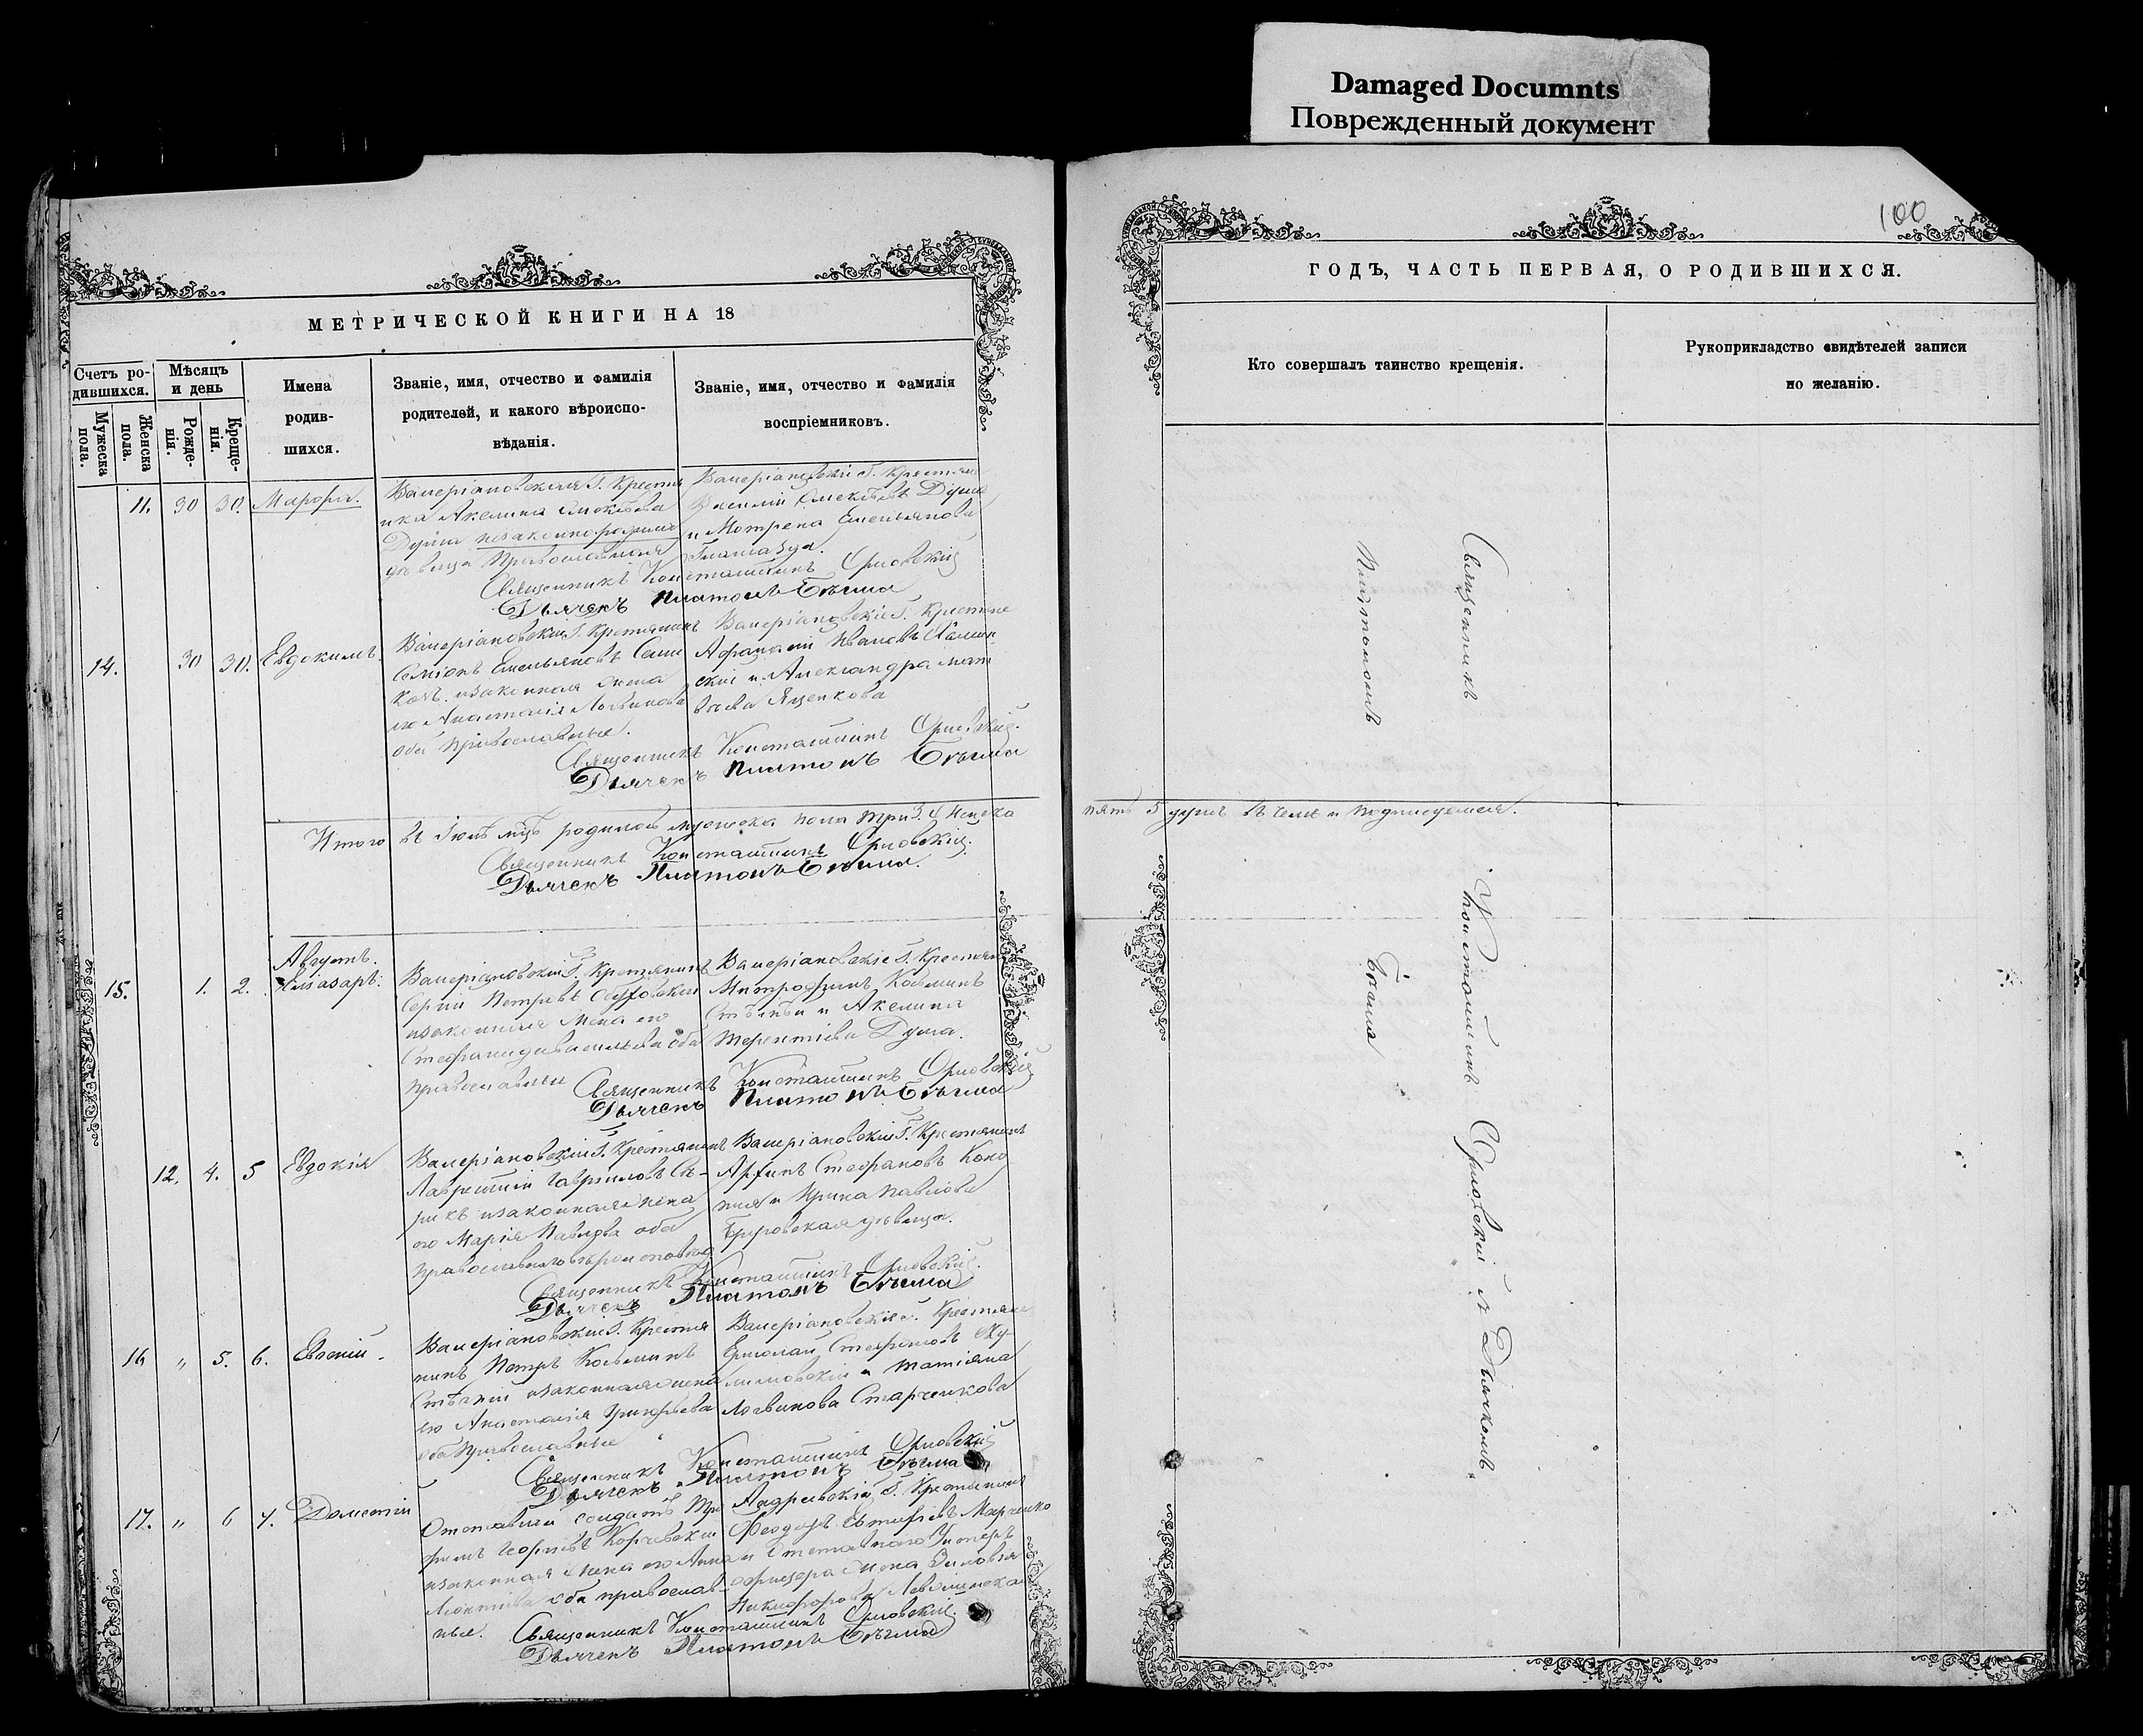 Damaged Documnts
Поврежденный документ
МЕТРИЧЕСКОЙ КНИГИ НА 18
Счетъ ро-
дившихся.
Мѣсяцъ
и день
Мужеска
пола.
Женска
пола.
Рожде-
нія.
Креще-
нія.
Имена
родив-
шихся.
Званіе, имя, отчество и фамилія
родителей, и какого вѣроиспо-
вѣданія.
Званіе, имя, отчество и фамилія
воспріемниковъ.
11. 30 30. Марфа.
Валеріановская Г. Крестья
нка Акелина
Дума незаконнорожд
дѣвица Православная
Валеріановскіе Г. Крестьяне
Василій Алексѣевъ Дума
и Мотрена Емельянова
Священникъ Константинъ Орловскій
Дьячекъ Платонъ Бѣлма
14. 30 30. Евдокимъ
Валеріановскій Г. Крестьянинъ
Семіонъ Емельяновъ Сени
и законная жена
его Анастасія Логвинова
оба православные.
Валеріановскіе Г. Крестьяне
Афанасій Ивановъ
скій и Александра Мат
вѣева Яценкова
Священникъ Константинъ Орловскій.
Дьячекъ Платонъ Бѣлма
Итого въ Іюлѣ мцѣ родилось мужеска пола три 3. Женска
Священникъ Константинъ Орловскій.
Дьячекъ Платонъ Бѣлма.
Августъ.
15. 1. 2. Елиазаръ.
Валеріановскій Г. Крестьянинъ
Сергій Петровъ
и законная жена его
Стефанида Васильева оба
православные
Валеріановскіе Г. Крестьяне
Митрофанъ Козьминъ
и Акелина
Терентіева Дума.
Священникъ Константинъ Орловскій
Дьячекъ Платонъ Бѣлма
12. 4. 5 Евдокія
Валеріановскій Г. Крестьянинъ
Лаврентій Гавриловъ Сѣ-
рикъ и законная жена
его Марія Павлова оба
Православнаго вѣроисповед
Валеріановскіе Г. Крестьянинъ
Стефановъ
и Ирина Павлова
дѣвица.
Священникъ Константинъ Орловскій.
Дьячекъ Платонъ Бѣлма
16 „ 5. 6. Евгеній
Валеріановскій Г. Крестья
нинъ Петръ Козьминъ
и законная жена
его Анастасія Григорьева
оба православные
Валеріановскіе Г. Крестьяне
Ермолай Стефановъ
и Татіяна
Логвинова Старченкова
Священникъ Константинъ Орловскій
Дьячекъ Платонъ Бѣлма
17. „ 6 7. Дометій
Отставной солдатъ Тро
фимъ
и законная жена его Анна
Леонтіева оба православ-
ные.
Г. Крестьянинъ
Феодоръ Марченко
и отставнаго Унтеръ
офицера жена Зиновія
Никифорова
Священникъ Константинъ Орловскій.
Дьячекъ Платонъ Бѣлма
100
ГОДЪ, ЧАСТЬ ПЕРВАЯ, О РОДИВШИХСЯ.
Кто совершалъ таинство крещенія.
Рукоприкладство свидѣтелей записи
по желанію.
Священникъ Константинъ Орловскій съ Дьячкомъ
Платономъ Бѣлма
пять 5 душъ въ чемъ и подписуемся.